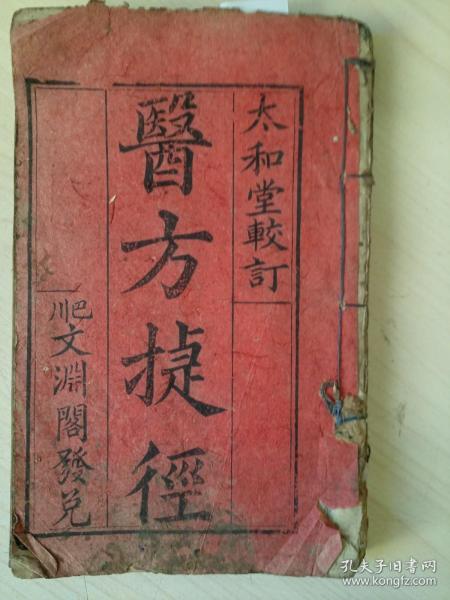 太和堂較訂
醫方捷徑
巴川文淵閣發兌
孔夫子旧书网
www.kongfz.com